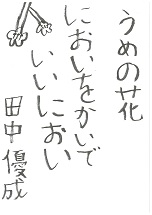 うめの花
においをかいで
いいにおい
田中優成